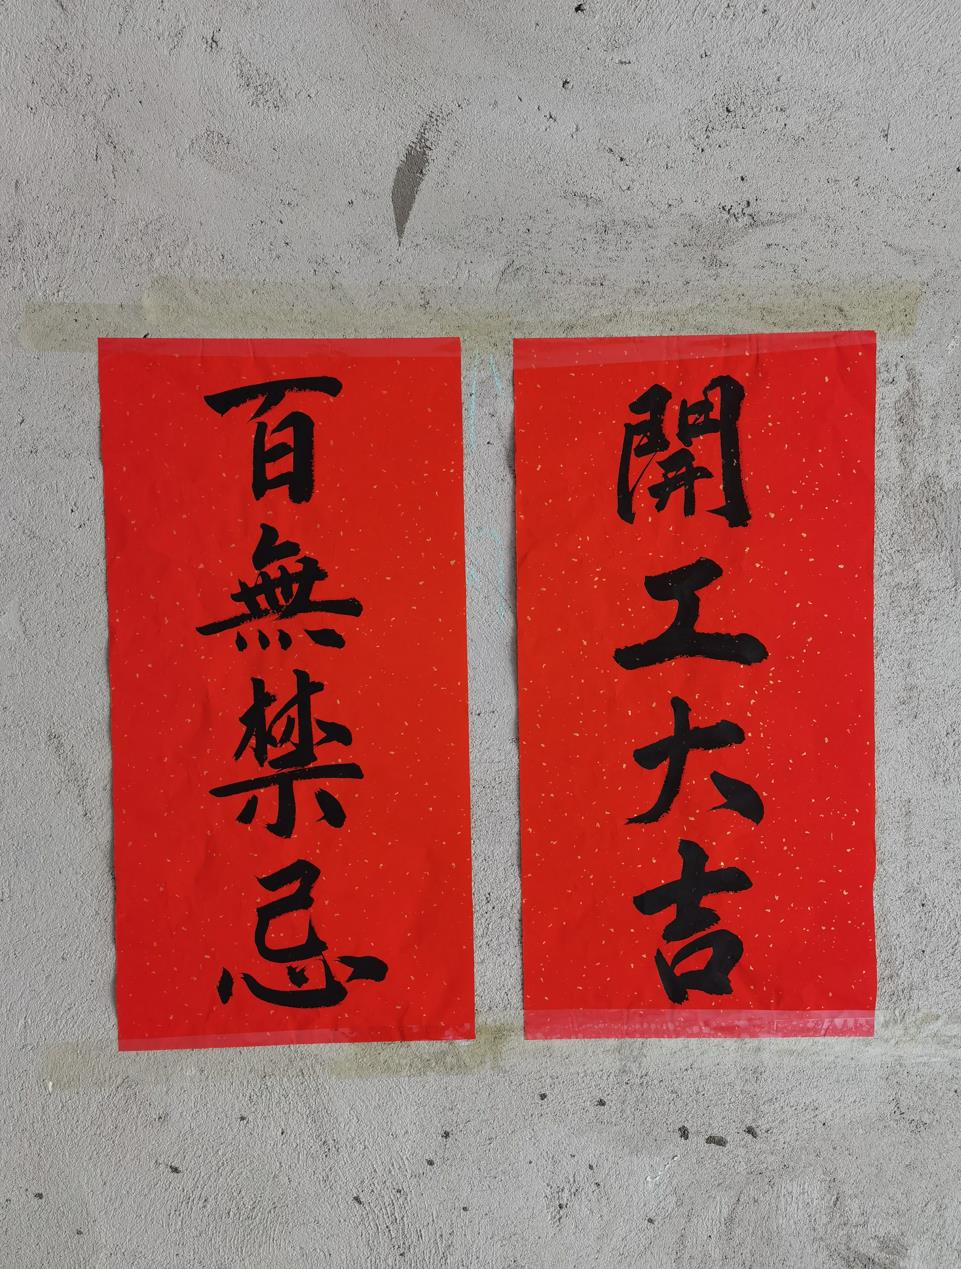 開工大吉
百無禁忌